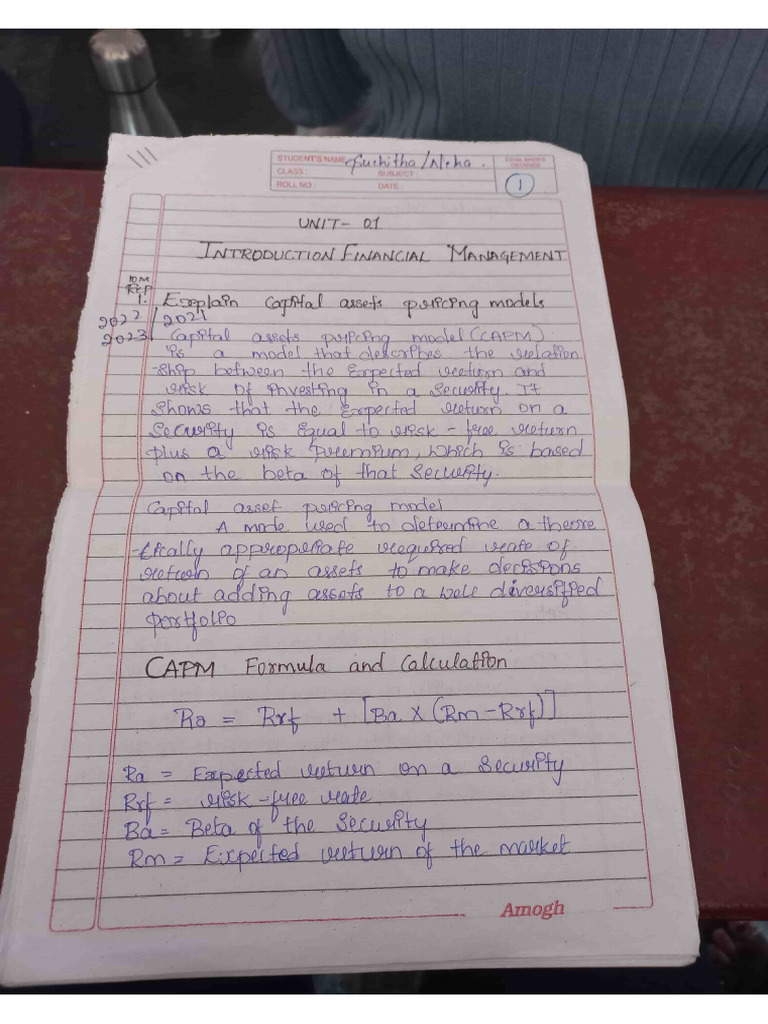 111
STUDENT'S NAME Suchitha/Neha.
CLASS: SUBJECT
ROLL NO: DATE:
1
UNIT- 01
INTRODUCTION FINANCIAL MANAGEMENT
10M
1. Explain Capital assets pricing models
2022/2021
2023 Capital assets pricing model (CAPM)
is a model that describes the relation
-ship between the Expected return and
risk of investing in a Security. It
shows that the Expected return on a
Security is Equal to risk-free return
plus a risk premium, which is based
on the beta of that Security.
Capital asset pricing model
A mode used to determine a theore
-tically approperiate required rate of
return of an assets to make decisions
about adding assets to a well diversified
portfolio
CAPM Formula and Calculation
Ra = Rrf + [Ba x (Rm-Rrf)]
Ra = Expected return on a Security
Rrf = risk-free rate
Ba = Beta of the Security
Rm = Expected return of the market
Amogh